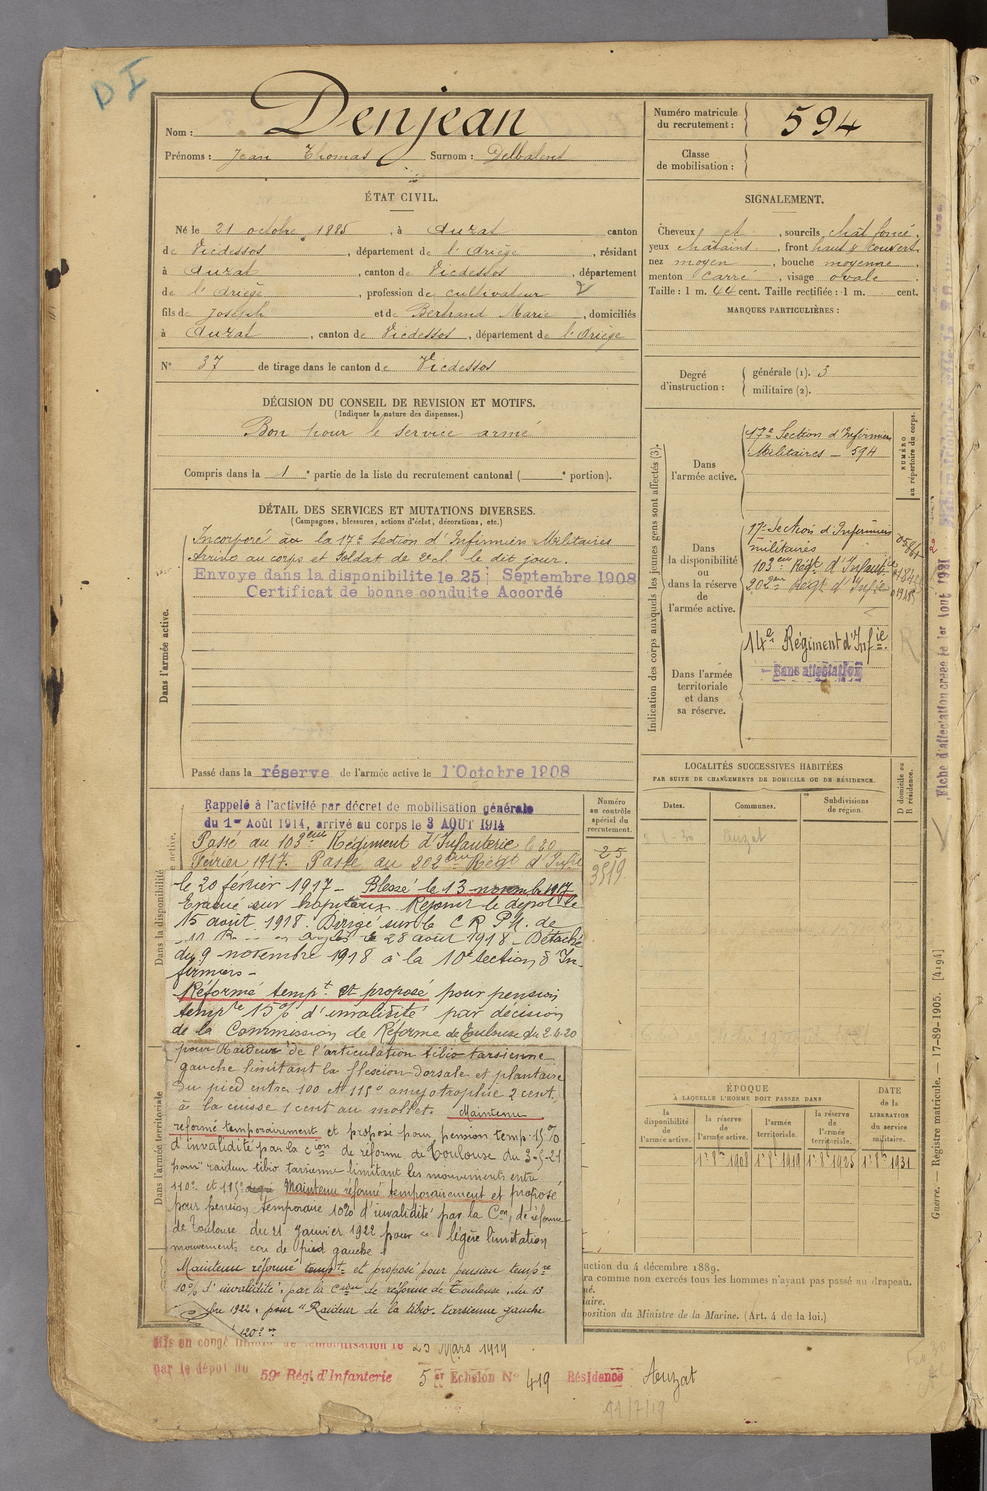 D I
Nom : Denjean
Prénoms : Jean Thomas Surnom : Delbalent
Numéro matricule du recrutement : 594
Classe de mobilisation :
ÉTAT CIVIL.
Né le 21 octobre 1885, à Auzat canton
de Vicdessos, département de l'Ariège, résidant
à Auzat, canton de Vicdessos, département
de l'Ariège, profession de cultivateur
fils de Joseph et de Bertrand Marie, domiciliés
à Auzat, canton de Vicdessos, département de l'Ariège
N° 37 de tirage dans le canton de Vicdessos
SIGNALEMENT.
Cheveux et, sourcils chât foncé.
yeux chatains, front haut & couvert
nez moyen, bouche moyenne,
menton carré, visage ovale
Taille : 1 m. 44 cent. Taille rectifiée : 1 m. cent.
MARQUES PARTICULIÈRES :
Degré d'instruction : générale (1). 3
militaire (2).
DÉCISION DU CONSEIL DE REVISION ET MOTIFS.
(Indiquer la nature des dispenses.)
Bon pour le service armé
Compris dans la 1e partie de la liste du recrutement cantonal ( e portion).
DÉTAIL DES SERVICES ET MUTATIONS DIVERSES.
(Campagnes, blessures, actions d'éclat, décorations, etc.)
Dans l'armée active.
Incorporé à la 17e Section d'Infirmiers Militaires
Arrivé au corps et Soldat de 2e cl. le dit jour.
Envoye dans la disponibilite le 25 Septembre 1908
Certificat de bonne conduite Accordé
Passé dans la réserve de l'armée active le 1 Octobre 1908
Indication des corps auxquels les jeunes gens sont affectés (3).
NUMÉRO au répertoire du corps.
Dans l'armée active.
17e Section d'Infirmiers
Militaires – 594
Dans la disponibilité ou dans la réserve de l'armée active.
17e Section d'Infirmiers
militaires
103eme Régt d'Infanterie
202eme Régt d'Infie
Dans l'armée territoriale et dans sa réserve.
14e Régiment d'Infie
Sans affectation
Fiche d'affectation créée le 1er Aout 1931
LOCALITÉS SUCCESSIVES HABITÉES
PAR SUITE DE CHANGEMENTS DE DOMICILE OU DE RÉSIDENCE.
Dates.
Communes.
Subdivisions de région.
D domicile ou R résidence.
Auzat
Dans la disponibilité
Rappelé à l'activité par décret de mobilisation générale
du 1er Août 1914, arrivé au corps le 3 AOUT 1914
Passé au 103eme Régiment d'Infanterie le 20
Février 1917. Passé au 202eme Régt d'Infie
le 20 février 1917 – Blessé le 13 novembre 1917
Evacué sur hopitaux. Rejoint le dépot le
15 août 1918. Dirigé sur le C R Ph. de
le 28 août 1918 – Détaché
du 9 novembre 1918 à la 10e section d'In-
firmiers –
Réformé tempt et proposé pour pension
tempre 15% d'invalidité par décision
de la Commission de Réforme de Toulouse du 2.6.20
pour Raideur de l'articulation tibio tarsienne
gauche limitant la flexion dorsale et plantaire
du pied entre 100 et 115° amyotrophie 2 cent.
à la cuisse 1 cent au mollet. Maintenu
réformé temporairement et proposé pour pension temp. 15%
d'invalidité par la Cion de réforme de Toulouse du 3-5-21
pour raideur tibio tarsienne limitant les mouvements entre
110° et 115° Maintenu réformé temporairement et proposé
pour pension temporaire 10% d'invalidité par la Con de réforme
de Toulouse du 21 Janvier 1922 pour légère limitation
mouvements cou de pied gauche.
Maintenu réformé tempt et proposé pour pension tempre
10% d'invalidité, par la Cion de réforme de Toulouse, du 13
bre 1922, pour "Raideur de la tibio tarsienne gauche
120°"
Dans l'armée territoriale
Numéro au contrôle spécial du recrutement.
25
3519
ÉPOQUE
À LAQUELLE L'HOMME DOIT PASSER DANS
la disponibilité de l'armée active.
la réserve de l'armée active.
l'armée territoriale.
la réserve de l'armée territoriale.
DATE de la LIBÉRATION du service militaire.
1er 8bre 1908
1er 8bre 1919
1er 8bre 1925
1er 8bre 1931
uction du 4 décembre 1889.
ra comme non exercés tous les hommes n'ayant pas passé au drapeau.
né.
laire.
position du Ministre de la Marine. (Art. 4 de la loi.)
Guerre. — Registre matricule. — 17-89-1905. [4194]
Mis en congé illimité de démobilisation le 25 Mars 1919
par le dépot du 59e Rég. d'Infanterie 5er Echelon N° 419 Résidence Auzat
11/7/19